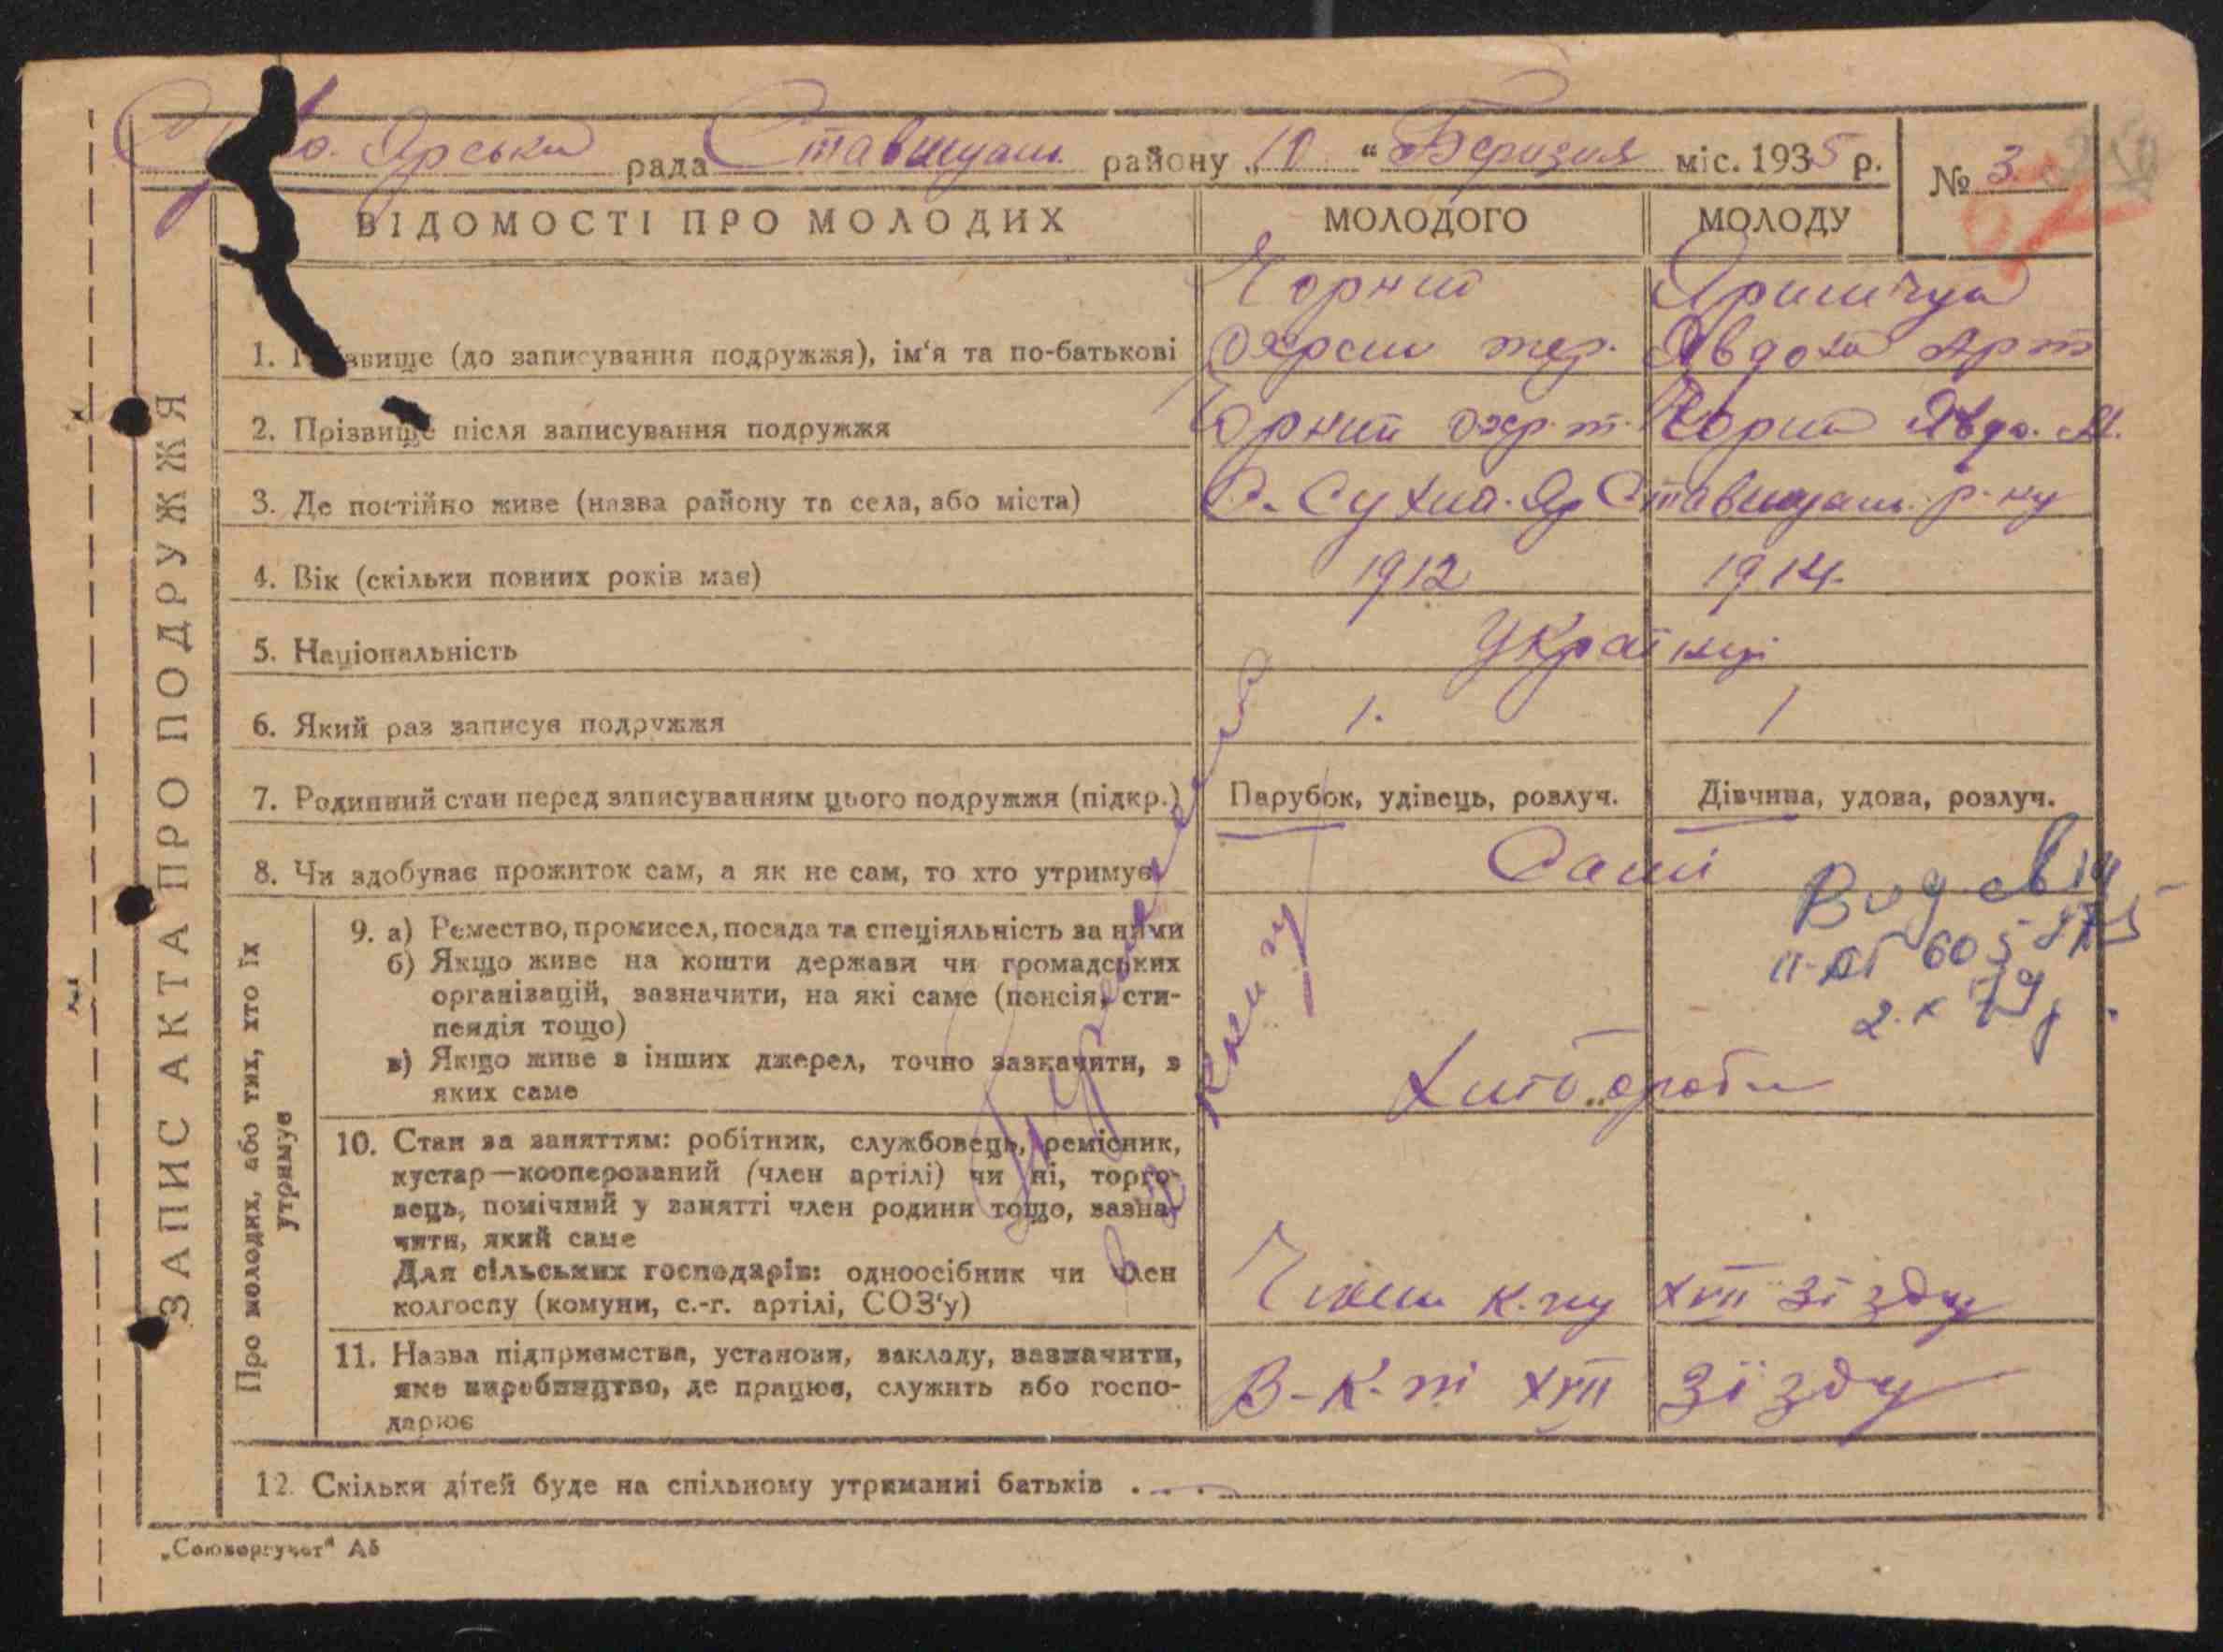 Ярська рада Ставищан. району „10" Березня міс. 1935 р.
№ 3
ЗАПИС АКТА ПРО ПОДРУЖЖЯ
ВІДОМОСТІ ПРО МОЛОДИХ МОЛОДОГО МОЛОДУ
Чорний
1. Прізвище (до записування подружжя), ім'я та по-батькові
2. Прізвище після записування подружжя Чорний
3. Де постійно живе (назва району та села, або міста) С. Сухий-Яр Ставищан. р-ну
4. Вік (скільки повних років має) 1912 1914
5. Національність Українці
6. Який раз записує подружжя 1. 1
7. Родинний стан перед записуванням цього подружжя (підкр.) Парубок, удівець, розлуч. Дівчина, удова, розлуч.
8. Чи здобуває прожиток сам, а як не сам, то хто утримує Самі
Про молодих, або тих, хто їх утримує
9. а) Ремество, промисел, посада та спеціяльність за ними
б) Якщо живе на кошти держави чи громадських
організацій, зазначити, на які саме (пенсія, сти-
пендія тощо)
в) Якщо живе з інших джерел, точно зазначити, з
яких саме
Хлібороби
10. Стан за заняттям: робітник, службовець, ремісник,
кустар—кооперований (член артілі) чи ні, торго-
вець, помічний у занятті член родини тощо, зазна-
чити, який саме
Для сільських господарів: одноосібник чи член
колгоспу (комуни, с.-г. артілі, СОЗ'у)
Члени к-пу XVII зізду
11. Назва підприємства, установи, закладу, зазначити,
яке виробництво, де працює, служить або госпо-
дарює
В-К-пі XVII зізду
12. Скільки дітей буде на спільному утриманні батьків
„Союзоргучет" А5